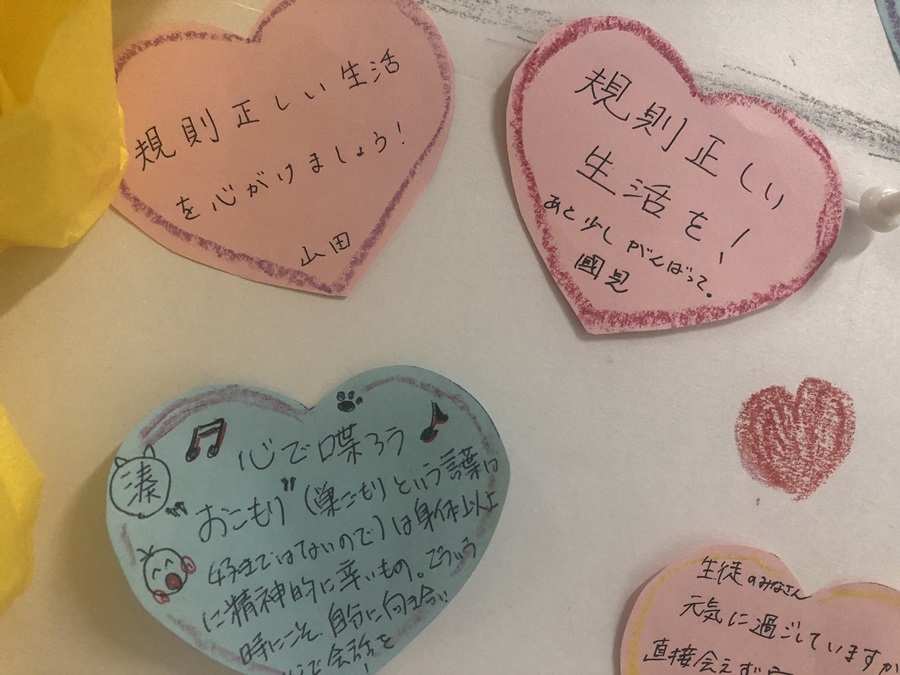 規則正しい生活
を心がけましょう!
山田
規則正しい
生活を!
あと少しがんばって。
國見
湊
心で喋ろう
"おこもり"(巣ごもりという言葉は
好きではないので)は身体以上
に精神的に辛いもの。こういう
時にこそ、自分に向き合い
心で会話を
生徒のみなさん
元気に過ごしていますか
直接会えず